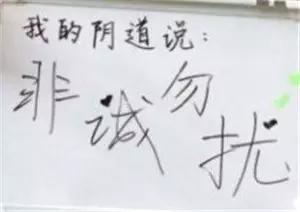 我的阴道说：
非诚勿扰